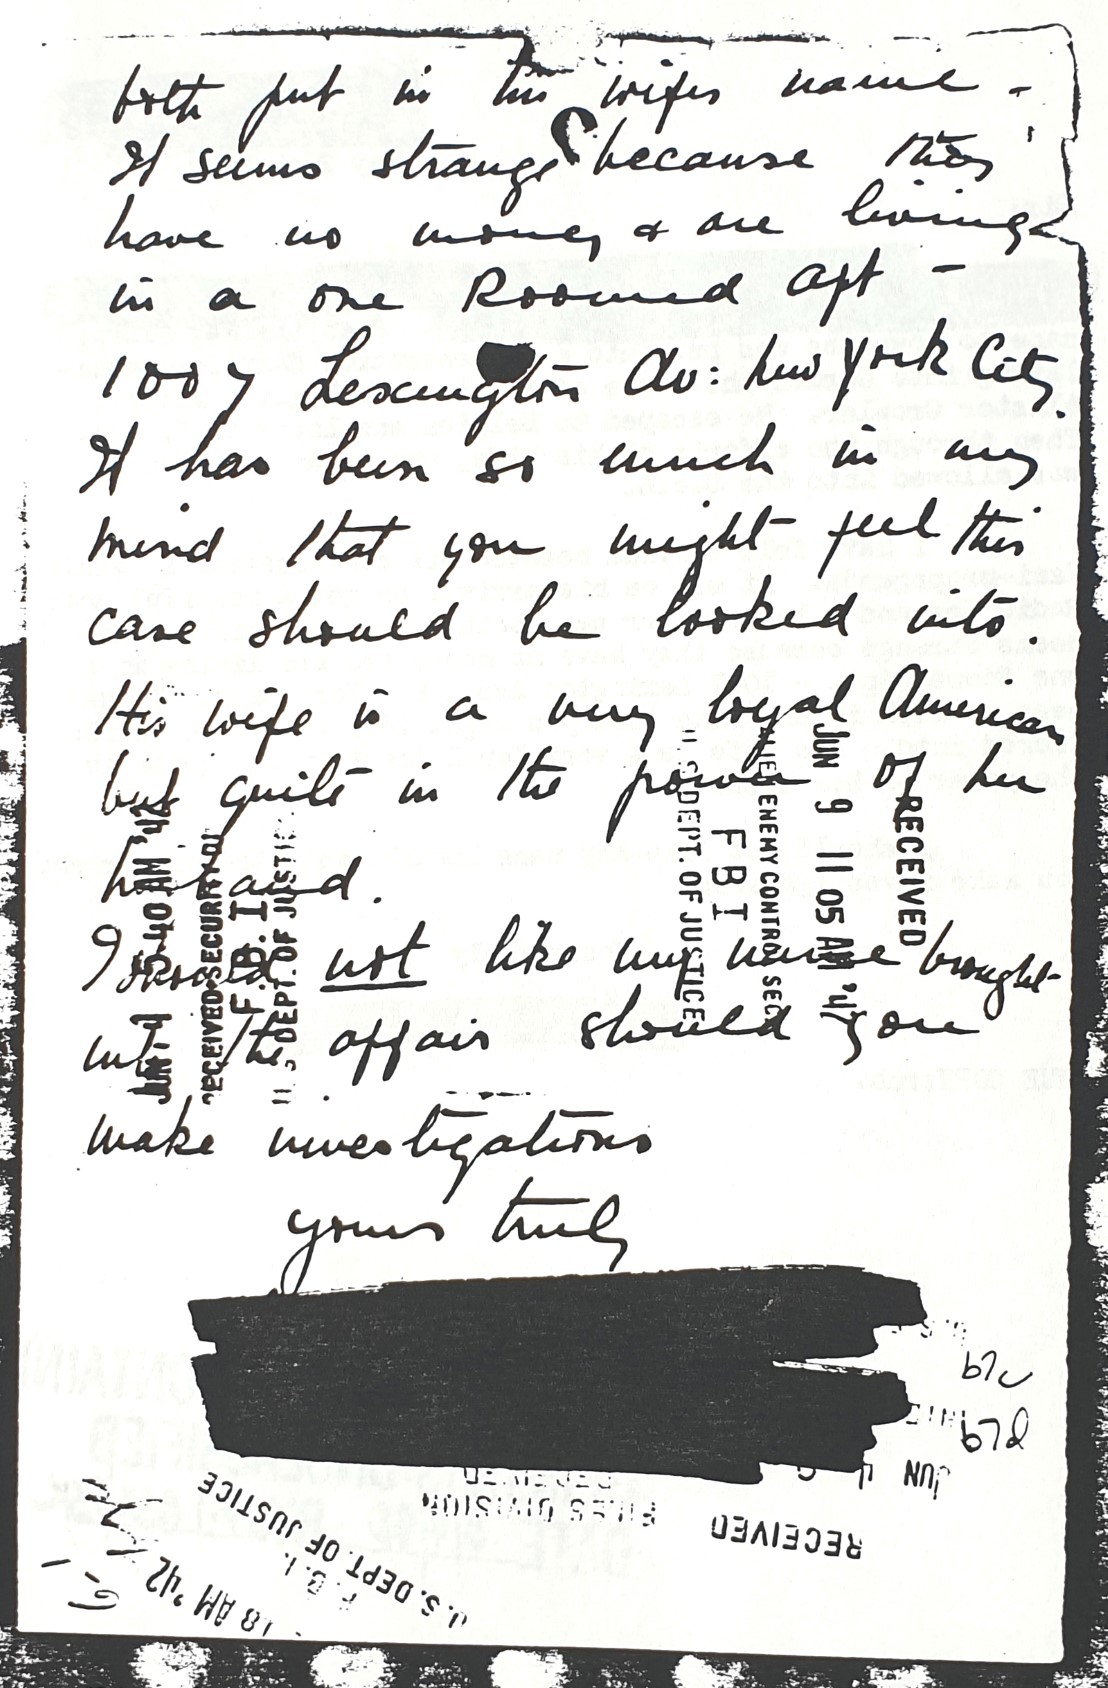 both put in his wifes name -
It seems strange because they
have no money & are living
in a one Roomed apt -
1007 Lexington Av: New York City.
It has been so much in my
mind that you might feel this
case should be looked into.
His wife is a very loyal American
but quite in the power of her
husband.
I should not like my name brought
into the affair should you
make investigations
yours truly
RECEIVED
JUN 9 11 05 AM '42
ALIEN ENEMY CONTROL SEC
F B I
U. S. DEPT. OF JUSTICE
40 AM '42
RECEIVED-SECURITY DI
F. B. I.
U. S. DEPT. OF JUSTICE
b7c
b7d
JUN
RECEIVED
FILES DIVISION
RECEIVED
U. S. DEPT. OF JUSTICE
F. B. I.
18 AM '42